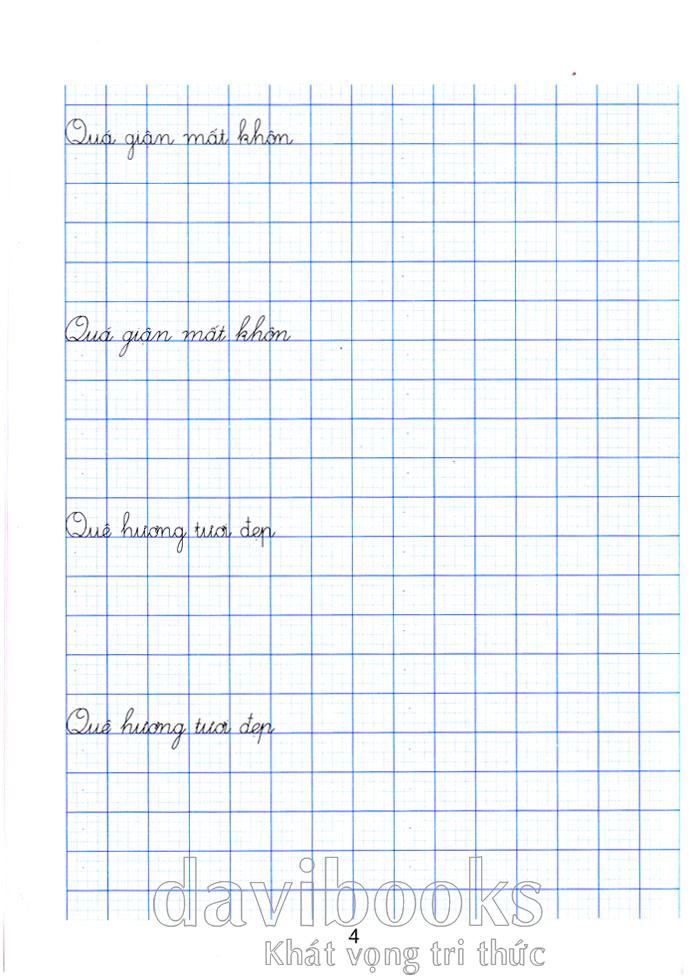 Quá giận mất khôn
Quá giận mất khôn
Quê hương tươi đẹp
Quê hương tươi đẹp
davibooks
4
Khát vọng tri thức